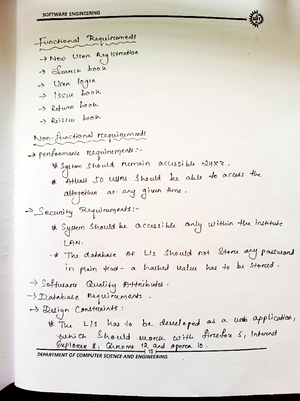 SOFTWARE ENGINEERING
Functional Requirements
→ New User Registration
→ Search book
→ User login
→ Issue book
→ Return book
→ Reissue book
Non-functional requirements
→ performance requirements:-
* System should remain accessible 24x7.
* Atleast 50 users should be able to access the
altogether at any given time.
→ Security Requirements:-
* System should be accessible only within the institute
LAN.
* The database of LIS should not store any password
in plain text - a hashed value has to be stored.
→ Software Quality Attributes.
→ Database Requirements.
→ Design Constraints:
* The LIS has to be developed as a web application,
which should work with firefox 5, Internet
Explorer 8, Chrome 12 and opera 10.
15
DEPARTMENT OF COMPUTER SCIENCE AND ENGINEERING